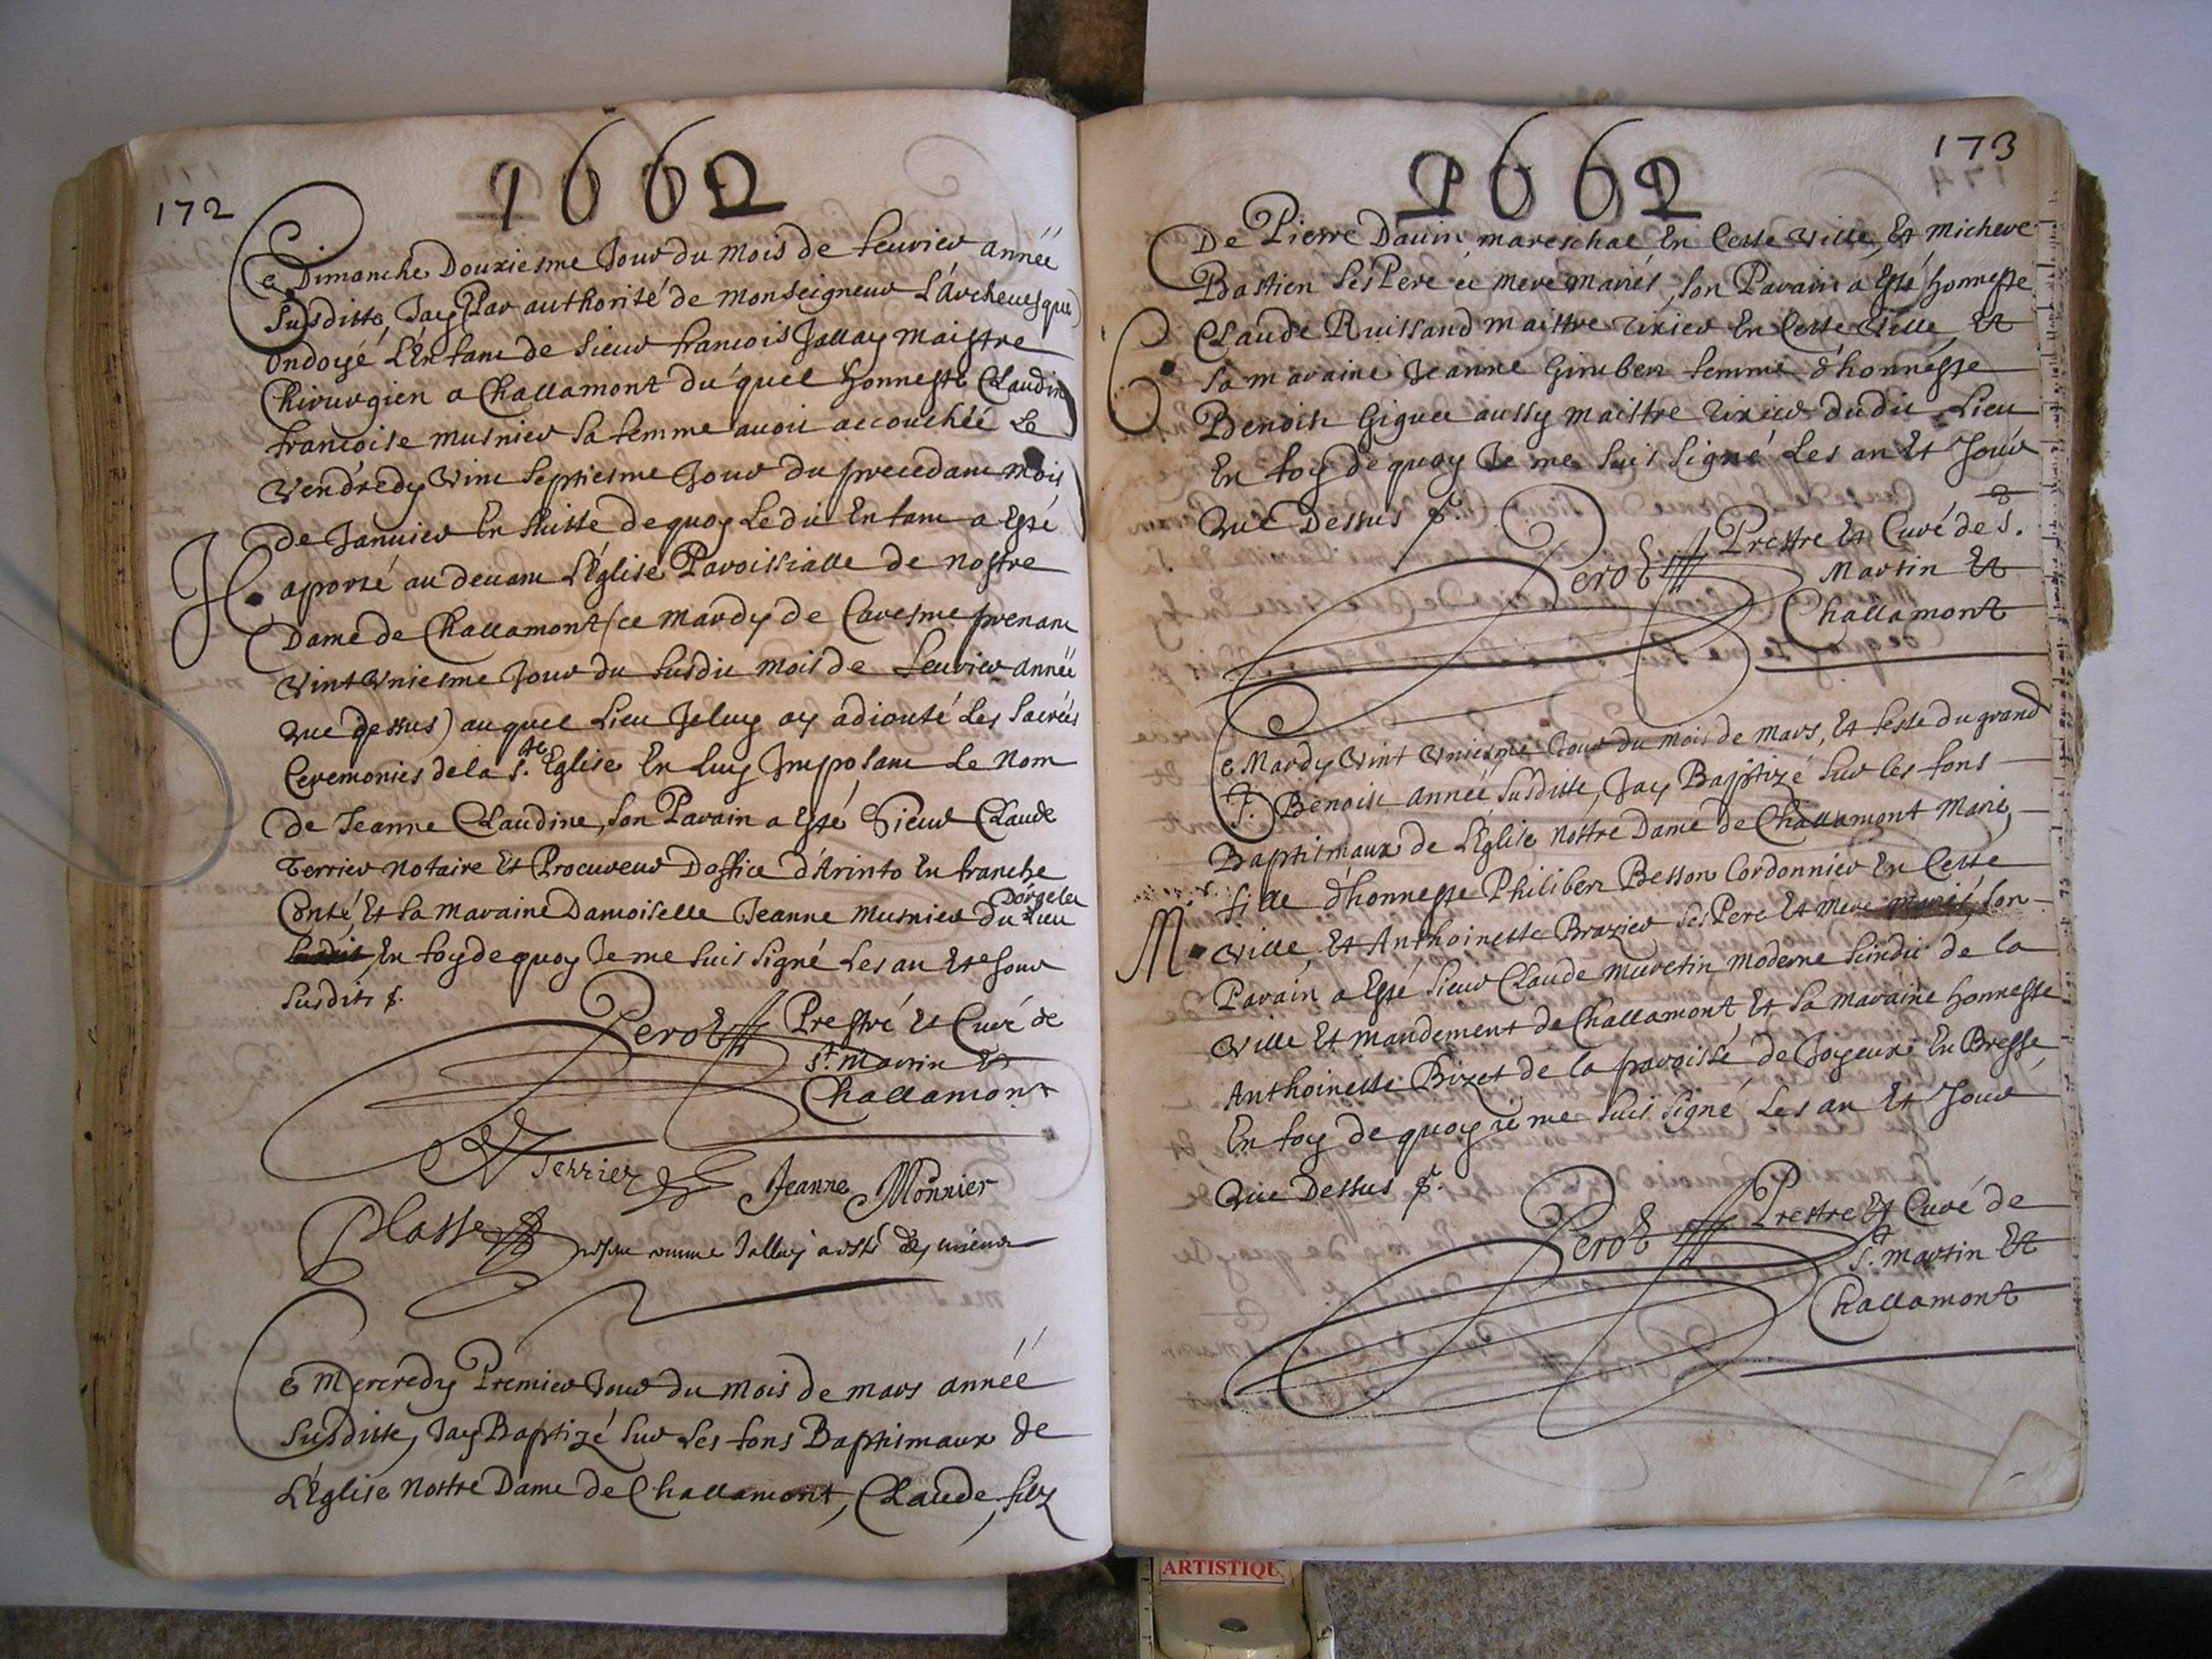 172
1662
Ce Dimanche Douxiesme Jour du Mois de feuvier année
Susditte, Jay (Par authorité de Monseigneur L'Archeuesque)
Ondoyé L'Enfant de Sieur francois Jallay Maistre
Chirurgien a Challamont du quel honneste Claudine
francoise musnier sa femme auoit accouchéé Le
Vendredy Vint Septiesme Jour du precedant Mois
de Januier En Suitte de quoy Ledit Enfant a Esté
J.
aporté au deuant L'Eglise Paroissialle de nostre
Dame de Challamont (ce Mardy de Caresme prenant
Vint Vniesme Jour du susdit Mois de feuvier année
que dessus) auquel Lieu Je luy ay adiouté Les Sacréés
Ceremonies de la Ste Eglise En Luy Imposant Le Nom
de Jeanne Claudine, son Parain a Esté Sieur Claude
Terrier Notaire Et Procureur Doffice d'Arinto En franche
Conté, Et sa Maraine Damoiselle Jeanne Musnier du Lieu
Dorgelet
En foy de quoy Je me suis signé Les an Et Jour
Susdits
Perot Prestre Et Curé de
St. Martin Et
Challamont
Terrier Jeanne Monnier
Plasse
Ce Mercredy Premier Jour du Mois de mars année
Susditte, Jay Baptizé sur Les fons Baptismaux de
L'Eglise Nostre Dame de Challamont, Claude, filz
173
1662
De Pierre Dauin mareschal En Cette Ville, Et Micheve
Bastien Ses Pere et Mere Mariés, son Parain a Esté honneste
C.
Claude Ruissand Maistre Tixier En Cette Ville, Et
Sa maraine Jeanne Giruber femme d'honneste
Benoist Giguet aussy Maistre Tixier dudit Lieu
En foy de quoy Je me suis signé Les an Et Jour
Que Dessus
Perot Prestre Et Curé de S.
Martin Et
Challamont
Ce Mardy Vint Vniesme Jour du mois de mars, Et feste du grand
S. Benoist année Susditte, Jay Baptizé sur les fons
Baptismaux de L'Eglise Nostre Dame de Challamont Marie,
fille d'honneste Philiber Besson Cordonnier En Cette
M.
Ville, Et Anthoinette Brazier Ses Pere Et Mere mariés, son
Parain a Esté Sieur Claude Muretin Moderne Sindic de la
Ville Et Mandement de Challamont Et sa maraine honneste
Anthoinette Bizet de la paroisse de Joyeux En Bresse,
En foy de quoy Je me suis signé Les an Et Jour
Que Dessus
Perot Prestre Et Curé de
St. Martin Et
Challamont
ARTISTIQU